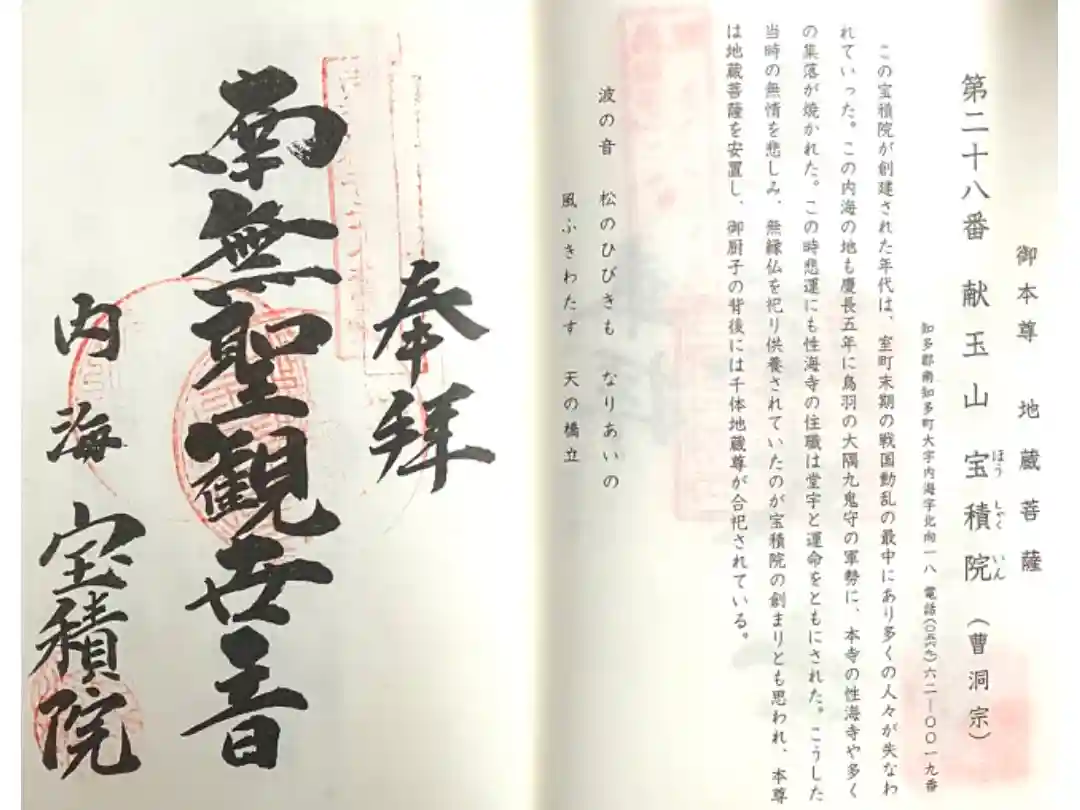 御本尊 地蔵菩薩
第二十八番 献玉山 宝積院 (曹洞宗)
ほう しゃく いん
知多郡南知多町大字内海字北向一八 電話(〇五六九)六二―〇〇一九番
この宝積院が創建された年代は、室町末期の戦国動乱の最中にあり多くの人々が失なわ
れていった。この内海の地も慶長五年に鳥羽の大隅九鬼守の軍勢に、本寺の性海寺や多く
の集落が焼かれた。この時悲運にも性海寺の住職は堂宇と運命をともにされた。こうした
当時の無情を悲しみ、無縁仏を祀り供養されていたのが宝積院の創まりとも思われ、本尊
は地蔵菩薩を安置し、御厨子の背後には千体地蔵尊が合祀されている。
波の音 松のひびきも なりあいの
風ふきわたす 天の橋立
奉拝
南無聖観世音
内海 宝積院